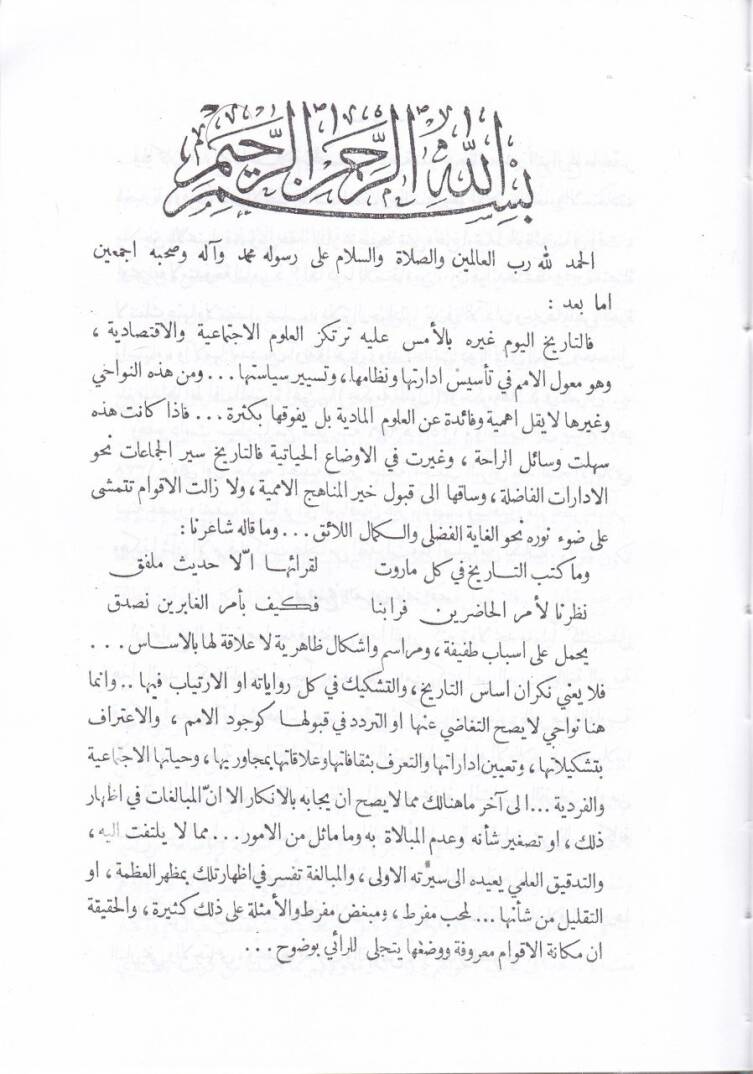 بسم الله الرحمن الرحيم
الحمد لله رب العالمين والصلاة والسلام على رسوله محمد وآله وصحبه اجمعين
اما بعد :
فالتاريخ اليوم غيره بالأمس عليه ترتكز العلوم الاجتماعية والاقتصادية ،
وهو معول الامم في تأسيس ادارتها ونظامها، وتسيير سياستها ... ومن هذه النواحي
وغيرها لايقل اهمية وفائدة عن العلوم المادية بل يفوقها بكثرة ... فاذا كانت هذه
سهلت وسائل الراحة ، وغيرت في الاوضاع الحياتية فالتاريخ سير الجماعات نحو
الادارات الفاضلة، وساقها الى قبول خير المناهج الاممية، ولا زالت الاقوام تتمشى
على ضوء نوره نحو الغاية الفضلى والكمال اللائق ... وما قاله شاعرنا :
وما كتب التاريخ في كل ماروت لقرائها الّا حديث ملفق
نظرنا لأمر الحاضرين فرابنا فكيف بأمر الغابرين نصدق
يحمل على اسباب طفيفة، ومراسم واشكال ظاهرية لا علاقة لها بالاساس ...
فلا يعني نكران اساس التاريخ، والتشكيك في كل رواياته او الارتياب فيها .. وانما
هنا نواحي لايصح التغاضي عنها او التردد في قبولها كوجود الامم ، والاعتراف
بتشكيلاتها، وتعيين اداراتها والتعرف بثقافاتها وعلاقاتها بمجاوريها، وحياتها الاجتماعية
والفردية ... الى آخر ماهنالك مما لايصح ان يجابه بالانكار الا انّ المبالغات في اظهار
ذلك ، او تصغير شأنه وعدم المبالاة به وما ماثل من الامور ... مما لا يلتفت اليه ،
والتدقيق العلمي يعيده الى سيرته الاولى ، والمبالغة تفسر في اظهار تلك بمظهر العظمة ، او
التقليل من شأنها ... لمحب مفرط ، ومبغض مفرط والأمثلة على ذلك كثيرة، والحقيقة
ان مكانة الاقوام معروفة ووضعها يتجلى للرائي بوضوح ...